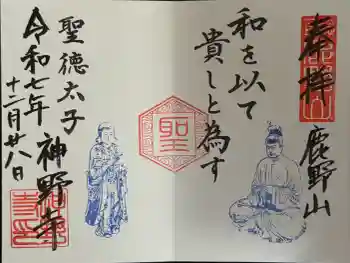 奉拝
鹿野山
和を以て
貴しと為す
聖
聖徳太子
令和七年
十二月廿八日
神野寺